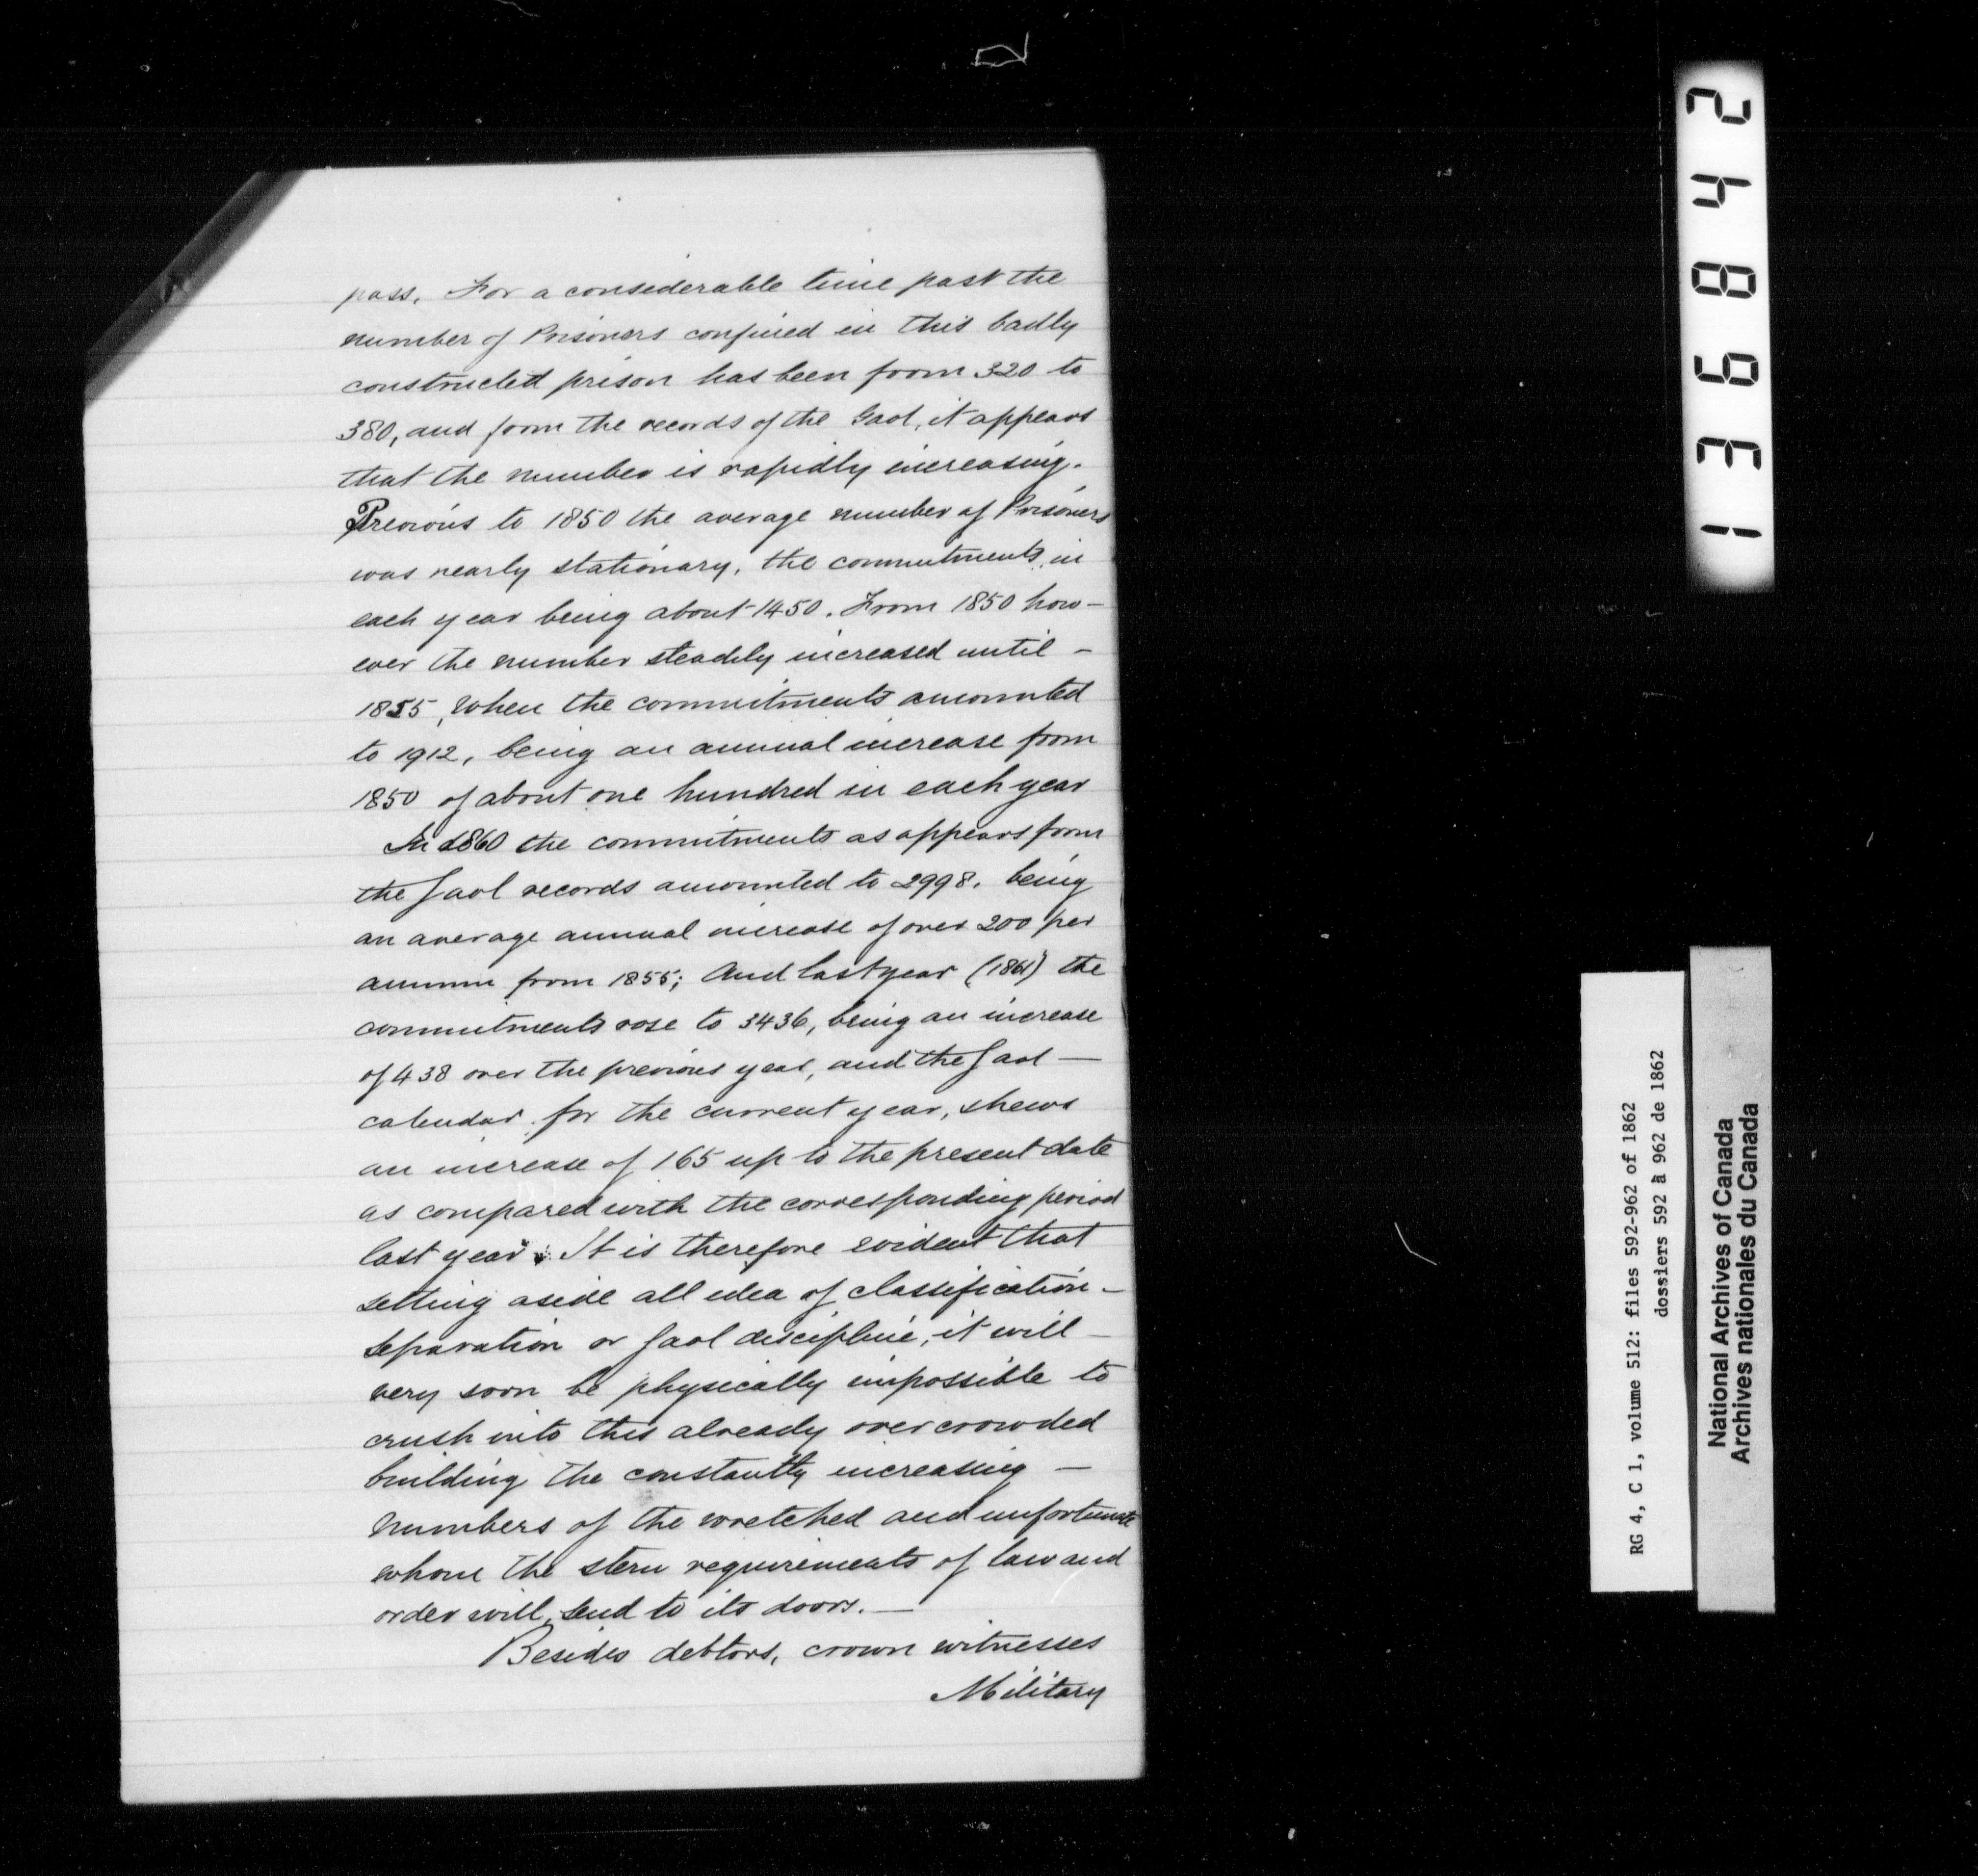 pass. For a considerable time past the
number of Prisoners confined in this badly
constructed prison has been from 320 to
380, and from the records of the Gaol, it appears
that the number is rapidly increasing.
Previous to 1850 the average number of Prisoners
was nearly stationary, the commitments in
each year being about 1450. From 1850 how-
ever the number steadily increased until -
1855, when the commitments amounted
to 1912, being an annual increase from
1850 of about one hundred in each year
In 1860 the commitments as appears from
the Gaol records amounted to 2998. being
an average annual increase of over 200 per
annum from 1855; And last year (1861) the
commitments rose to 3436, being an increase
of 438 over the previous year, and the Gaol —
calendar for the current year, shews
an increase of 165 up to the present date
as compared with the corresponding period
last year. It is therefore evident that
setting aside all idea of classification -
separation or Gaol discipline, it will -
very soon be physically impossible to
crush into this already overcrowded
building the constantly increasing —
numbers of the wretched and unfortunate
whom the stern requirements of law and
order will, send to its doors. —
Besides debtors, crown witnesses
Military
136842
RG 4, C 1, volume 512: files 592-962 of 1862
dossiers 592 à 962 de 1862
National Archives of Canada
Archives nationales du Canada